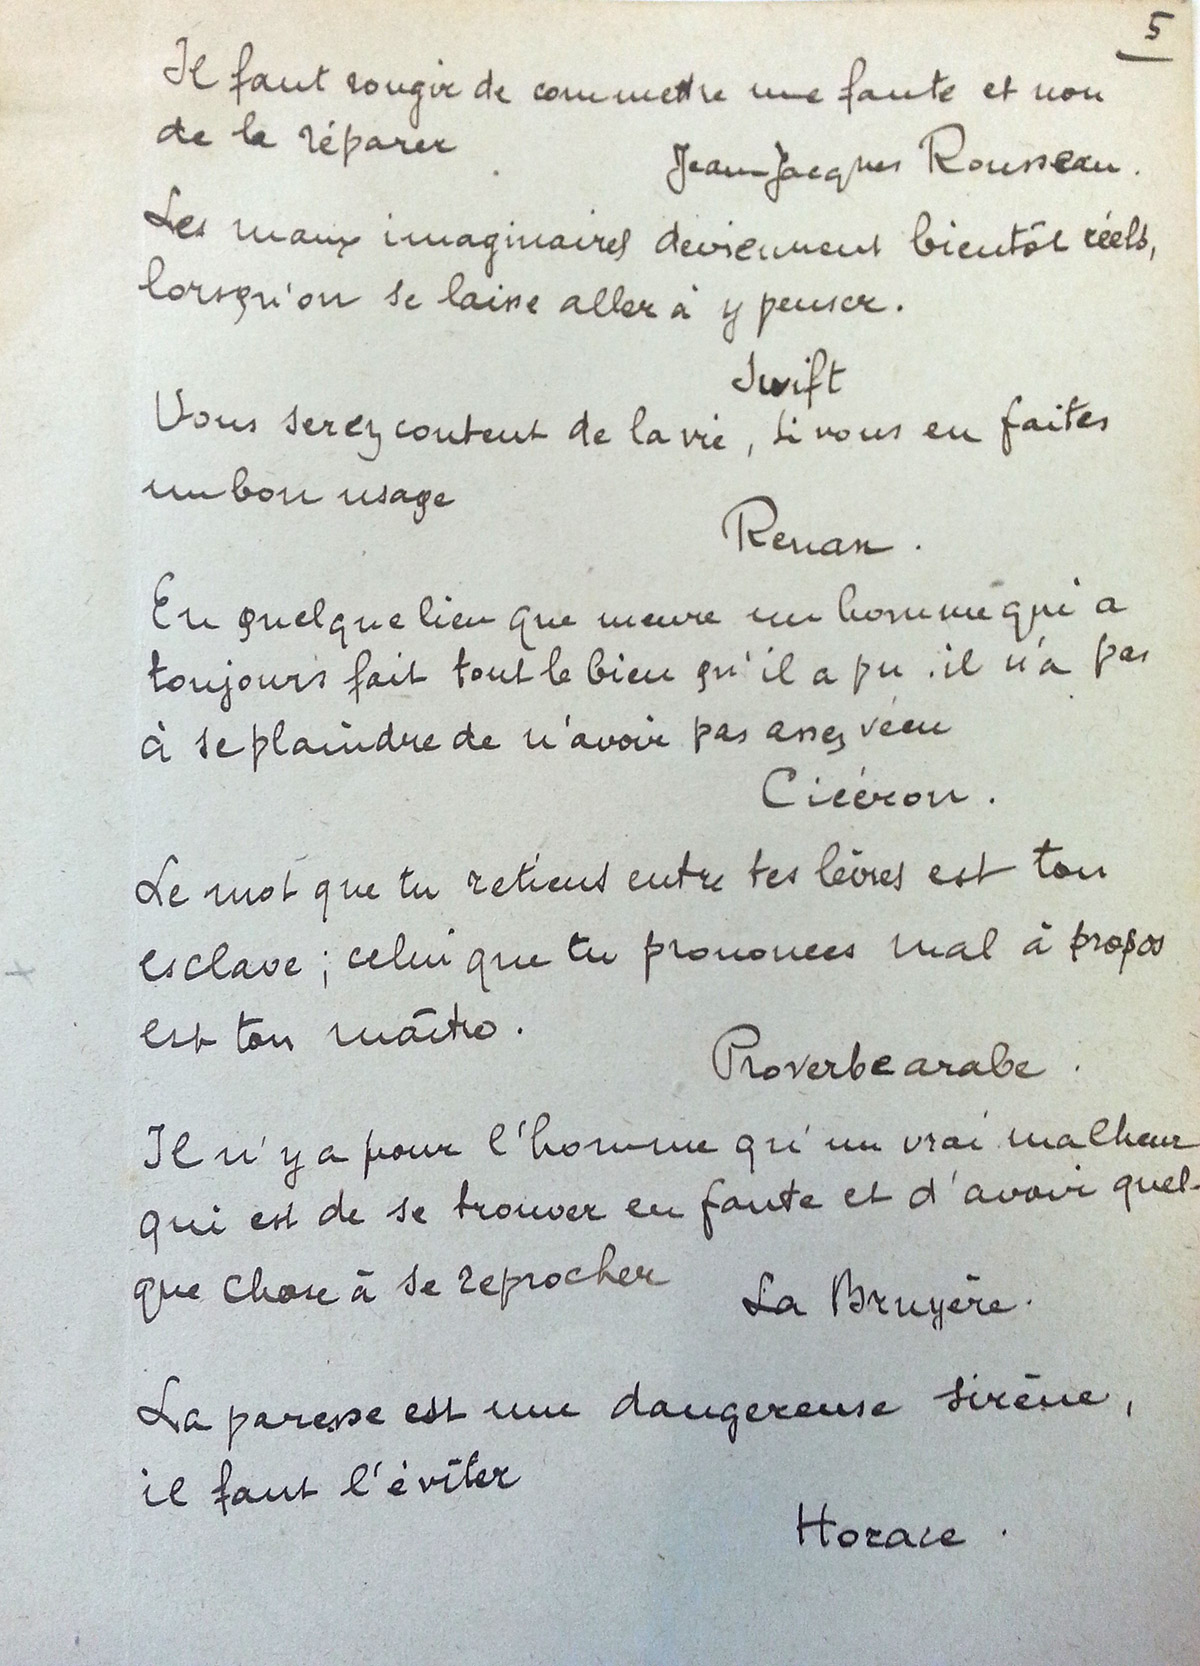 5
Il faut rougir de commettre une faute et non
de la réparer
Jean-Jacques Rousseau.
Les maux imaginaires deviennent bientôt réels,
lorsqu'on se laisse aller à y penser.
Swift
Vous serez content de la vie, si vous en faites
un bon usage
Renan.
En quelque lieu que meure un homme qui a
toujours fait tout le bien qu'il a pu. il n'a pas
à se plaindre de n'avoir pas assez vécu
Cicéron.
Le mot que tu retiens entre tes lèvres est ton
esclave; celui que tu prononces mal à propos
est ton maître.
Proverbe arabe.
Il n'y a pour l'homme qu'un vrai malheur
qui est de se trouver en faute et d'avoir quel-
que chose à se reprocher
La Bruyère.
La paresse est une dangereuse sirène,
il faut l'éviter
Horace.